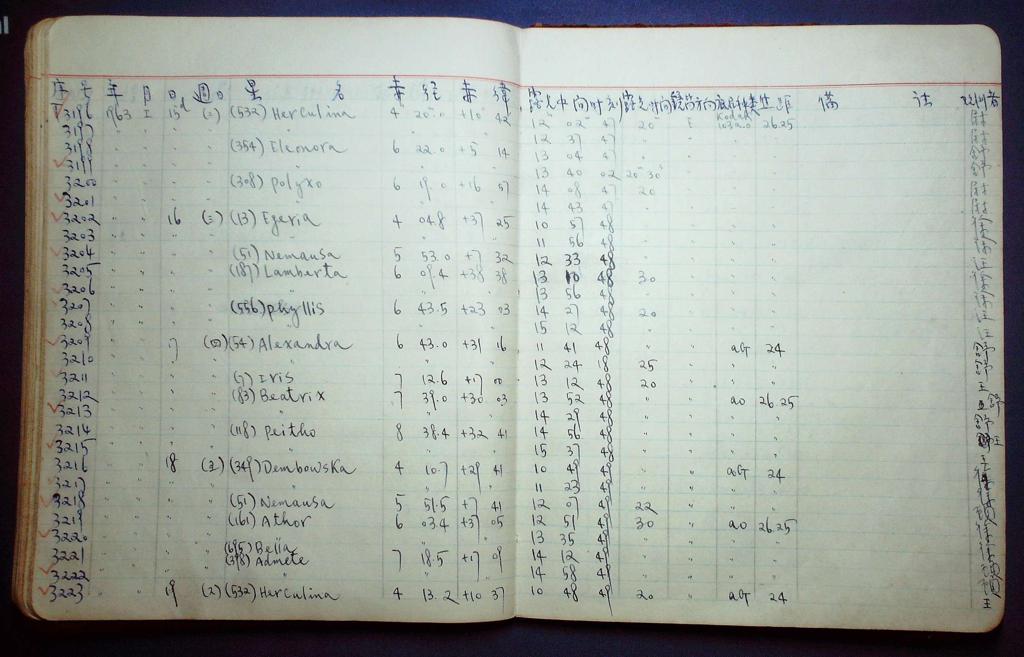 序号 年 月 日 週日 星 名 赤 经 赤 纬 露光中间时刻 露光时间 备 注
3196 1963 I 15d (532) Herculina 4 20.0 +10 42 12 02 47 20 E Kodak 103a.O 26.25
3197 " " " " " 12 37 47 " " " "
3198 " " " " (354) Eleonora 6 22.0 +5 14 13 04 47 " " " "
3199 " " " " " 13 40 02 20 30 " " "
3200 " " " " (308) Polyxo 6 19.0 +16 57 14 08 47 20 " " "
3201 " " " " " 14 43 47 " " " "
3202 " " 16 (13) Egeria 4 04.8 +37 25 10 57 48 " " " "
3203 " " " " " 11 56 48 " " " "
3204 " " " " (51) Nemausa 5 53.0 +7 32 12 33 48 " " " "
3205 " " " " (187) Lamberta 6 09.4 +38 38 13 10 48 30 " " "
3206 " " " " " 13 56 48 " " " "
3207 " " " " (556) Phyllis 6 43.5 +23 03 14 27 48 20 " " "
3208 " " " " " 15 12 48 " " " "
3209 " " 7 (四) (54) Alexandra 6 43.0 +31 16 11 41 48 " " aG 24
3210 " " " " " 12 24 48 25 " " "
3211 " " " " (7) Iris 7 12.6 +17 00 13 12 48 20 " " "
3212 " " " " (83) Beatrix 7 39.0 +30 03 13 52 48 " " aO 26.25
3213 " " " " " 14 29 48 " " " "
3214 " " " " (118) Peitho 8 38.4 +32 41 14 56 48 " " " "
3215 " " " " " 15 37 48 " " " "
3216 " " 18 (349) Dembowska 4 10.7 +29 41 10 49 49 " " aG 24
3217 " " " " " 11 23 49 " " " "
3218 " " " " (51) Nemausa 5 51.5 +7 41 12 07 49 22 " " "
3219 " " " " (161) Athor 6 03.4 +37 05 12 51 49 30 " aO 26.25
3220 " " " " " 13 35 49 " " " "
(695) Bella
3221 " " " " (398) Admete 7 18.5 +17 09 14 12 49 " " " "
3222 " " " " " 14 58 49 " " " "
3223 " " 19 (532) Herculina 4 13.2 +10 37 10 48 49 20 " aG 24